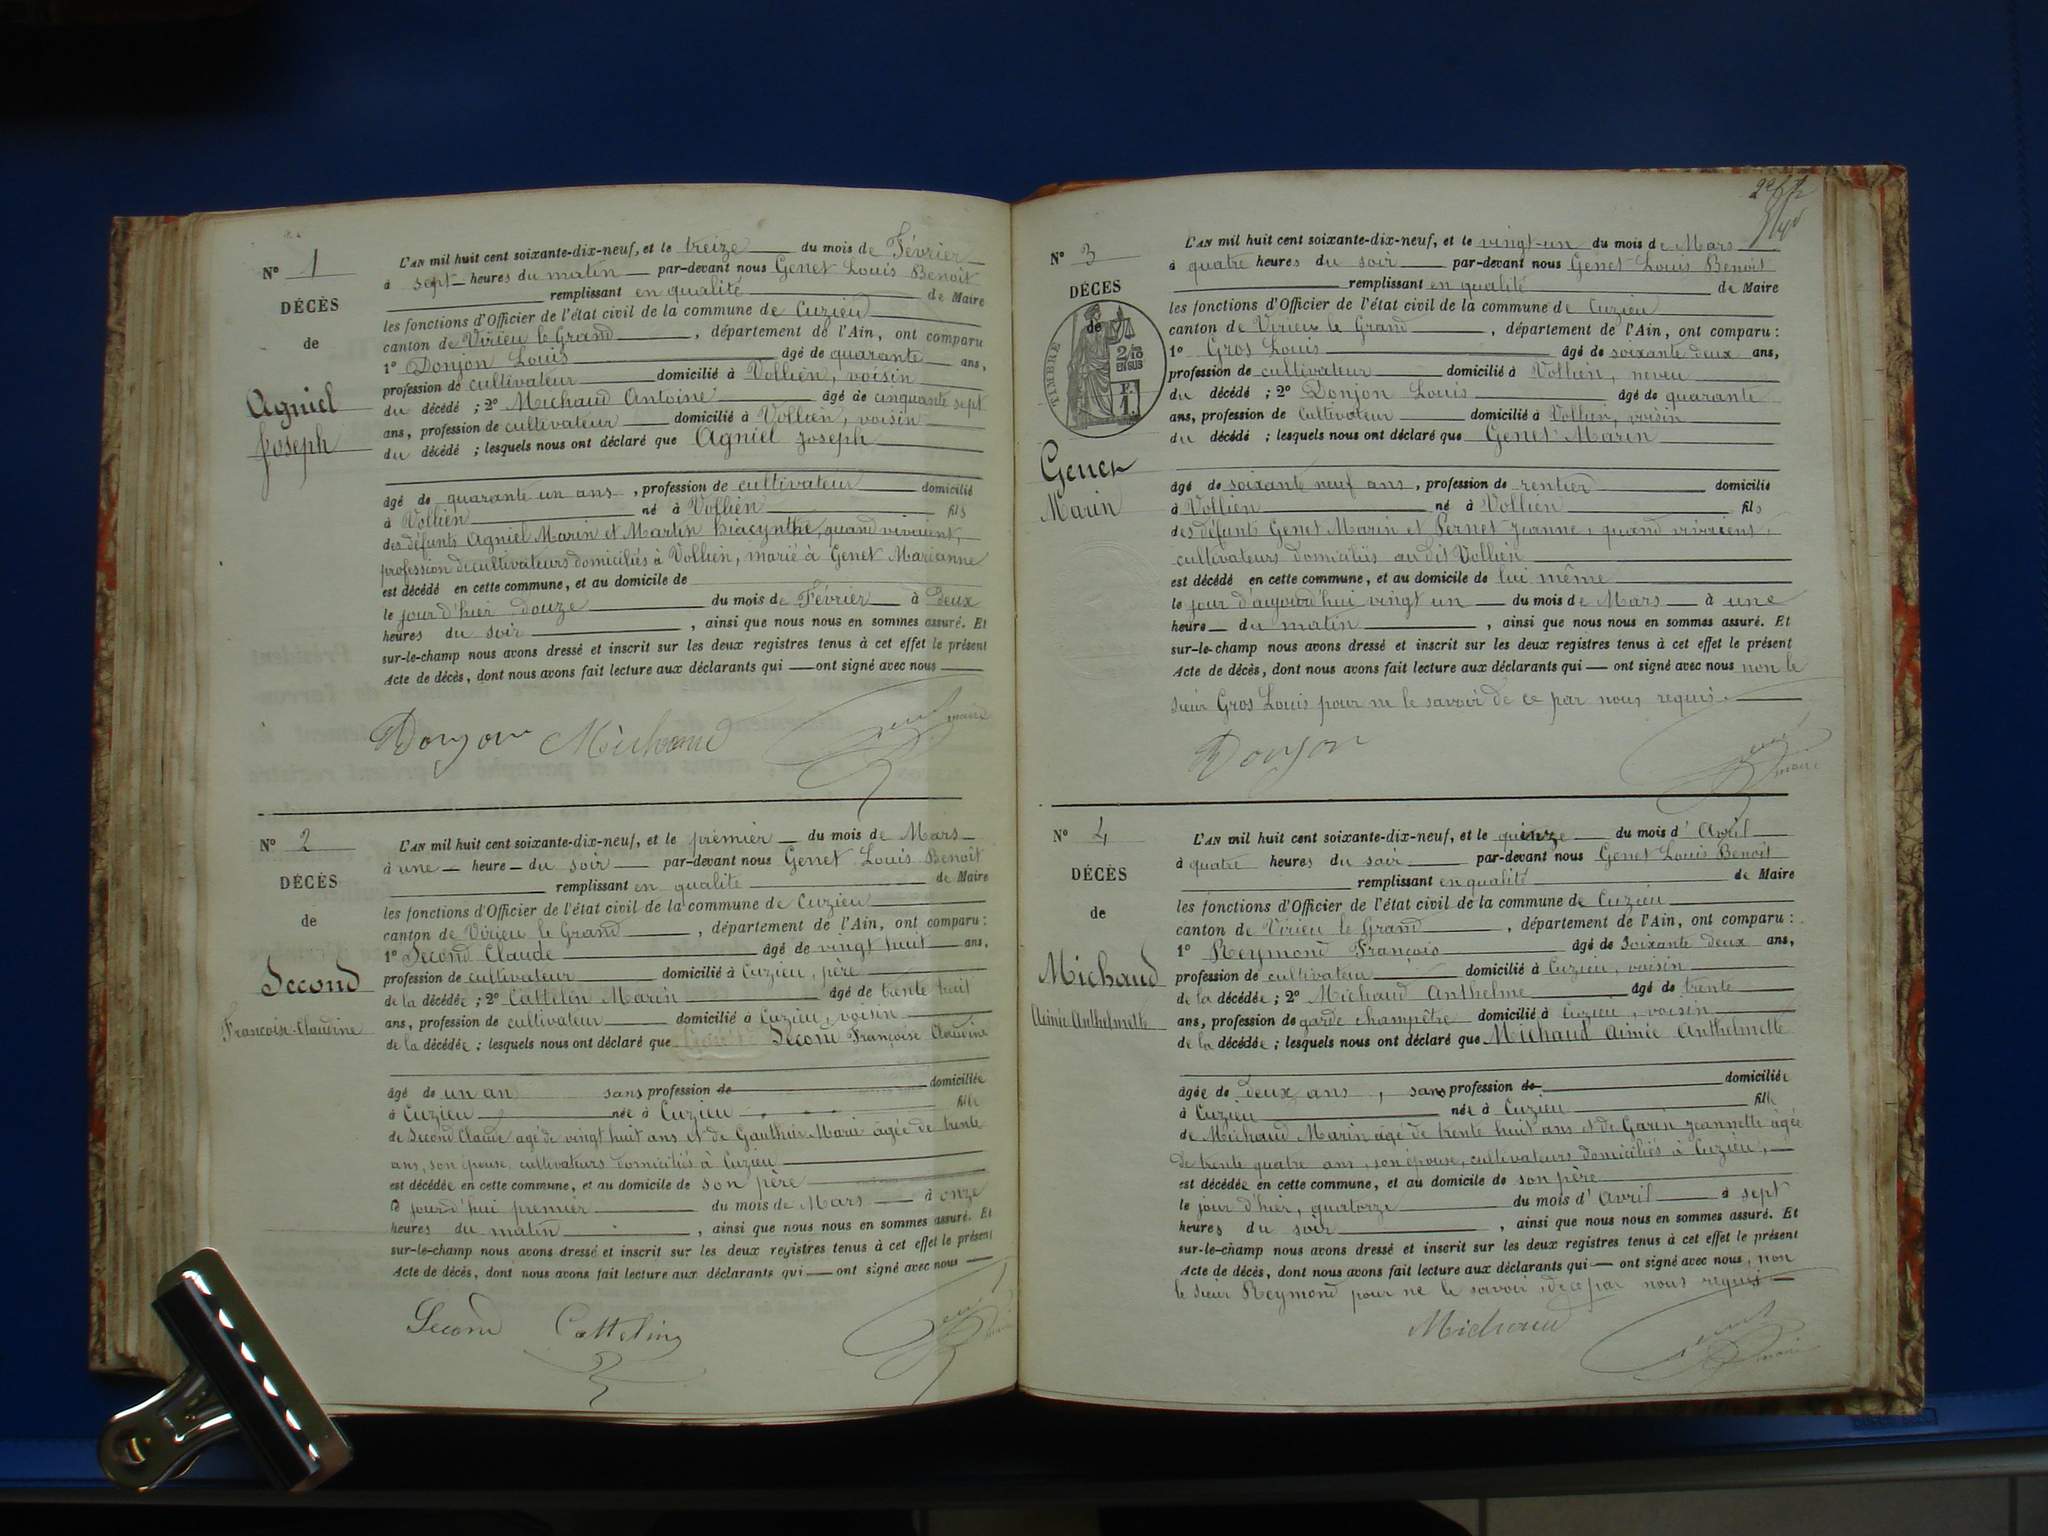 N° 1
DÉCÈS
de
Agniel
Joseph
L'AN mil huit cent soixante-dix-neuf, et le treize du mois de Février
à sept heures du matin par-devant nous Genet Louis Benoit
remplissant en qualité de Maire
les fonctions d'Officier de l'état civil de la commune de Cuzieu
canton de Virieu le Grand, département de l'Ain, ont comparu
1° Donjon Louis âgé de quarante ans,
profession de cultivateur domicilié à Vollien, voisin
du décédé ; 2° Michaud Antoine âgé de cinquante sept
ans, profession de cultivateur domicilié à Vollien, voisin
du décédé ; lesquels nous ont déclaré que Agniel Joseph
âgé de quarante un ans, profession de cultivateur domicilié
à Vollien né à Vollien fils
des défunts Agniel Marin et Martin hiacynthe, quand vivaient,
profession de cultivateurs domiciliés à Vollien, marié à Genet Marianne
est décédé en cette commune, et au domicile de
le jour d'hier douze du mois de Février à deux
heures du soir, ainsi que nous nous en sommes assuré. Et
sur-le-champ nous avons dressé et inscrit sur les deux registres tenus à cet effet le présent
Acte de décès, dont nous avons fait lecture aux déclarants qui ont signé avec nous
Donjon Michaud Genet maire
N° 2
DÉCÈS
de
Second
Françoise-Claudine
L'AN mil huit cent soixante-dix-neuf, et le premier du mois de Mars
à une heure du soir par-devant nous Genet Louis Benoit
remplissant en qualité de Maire
les fonctions d'Officier de l'état civil de la commune de Cuzieu
canton de Virieu le Grand, département de l'Ain, ont comparu :
1° Second Claude âgé de vingt huit ans,
profession de cultivateur domicilié à Cuzieu, père
de la décédée ; 2° Cattelin Marin âgé de trente huit
ans, profession de cultivateur domicilié à Cuzieu, voisin
de la décédée ; lesquels nous ont déclaré que Second Françoise Claudine
âgé de un an sans profession de domiciliée
à Cuzieu née à Cuzieu fille
de Second Claude agé de vingt huit ans et de Gauthier Marie agée de trente
ans, son épouse cultivateurs domiciliés à Cuzieu
est décédée en cette commune, et au domicile de son père
le jourd'hui premier du mois de Mars à onze
heures du matin, ainsi que nous nous en sommes assuré. Et
sur-le-champ nous avons dressé et inscrit sur les deux registres tenus à cet effet le présent
Acte de décès, dont nous avons fait lecture aux déclarants qui ont signé avec nous
Second Cattelin Genet maire
N° 3
DÉCÈS
de
TIMBRE
2/10
EN SUS
F.
1.
Genet
Marin
L'AN mil huit cent soixante-dix-neuf, et le vingt-un du mois de Mars
à quatre heures du soir par-devant nous Genet Louis Benoit
remplissant en qualité de Maire
les fonctions d'Officier de l'état civil de la commune de Cuzieu
canton de Virieu le Grand, département de l'Ain, ont comparu :
1° Gros Louis âgé de soixante deux ans,
profession de cultivateur domicilié à Vollien, neveu
du décédé ; 2° Donjon Louis âgé de quarante
ans, profession de Cultivateur domicilié à Vollien, voisin
du décédé ; lesquels nous ont déclaré que Genet Marin
âgé de soixante neuf ans, profession de rentier domicilié
à Vollien né à Vollien fils
des défunts Genet Marin et Pernet Jeanne, quand vivaient,
cultivateurs domiciliés au dit Vollien
est décédé en cette commune, et au domicile de lui même
le jour d'aujourd'hui vingt un du mois de Mars à une
heure du matin, ainsi que nous nous en sommes assuré. Et
sur-le-champ nous avons dressé et inscrit sur les deux registres tenus à cet effet le présent
Acte de décès, dont nous avons fait lecture aux déclarants qui ont signé avec nous non le
sieur Gros Louis pour ne le savoir de ce par nous requis
Donjon Genet maire
N° 4
DÉCÈS
de
Michaud
Aimée Anthelmette
L'AN mil huit cent soixante-dix-neuf, et le quinze du mois d'Avril
à quatre heures du soir par-devant nous Genet Louis Benoit
remplissant en qualité de Maire
les fonctions d'Officier de l'état civil de la commune de Cuzieu
canton de Virieu le Grand, département de l'Ain, ont comparu :
1° Reymond François âgé de Soixante deux ans,
profession de cultivateur domicilié à Cuzieu, voisin
de la décédée ; 2° Michaud Anthelme âgé de trente
ans, profession de garde champêtre domicilié à Cuzieu, voisin
de la décédée ; lesquels nous ont déclaré que Michaud Aimée Anthelmette
âgée de deux ans, sans profession de domiciliée
à Cuzieu née à Cuzieu fille
de Michaud Marin agé de trente huit ans et de Garin Jeannette agée
de trente quatre ans, son épouse, cultivateurs domiciliés à Cuzieu,
est décédée en cette commune, et au domicile de son père
le jour d'hier, quatorze du mois d'Avril à sept
heures du soir, ainsi que nous nous en sommes assuré. Et
sur-le-champ nous avons dressé et inscrit sur les deux registres tenus à cet effet le présent
Acte de décès, dont nous avons fait lecture aux déclarants qui ont signé avec nous, non
le sieur Reymond pour ne le savoir, de ce par nous requis
Michaud Genet maire